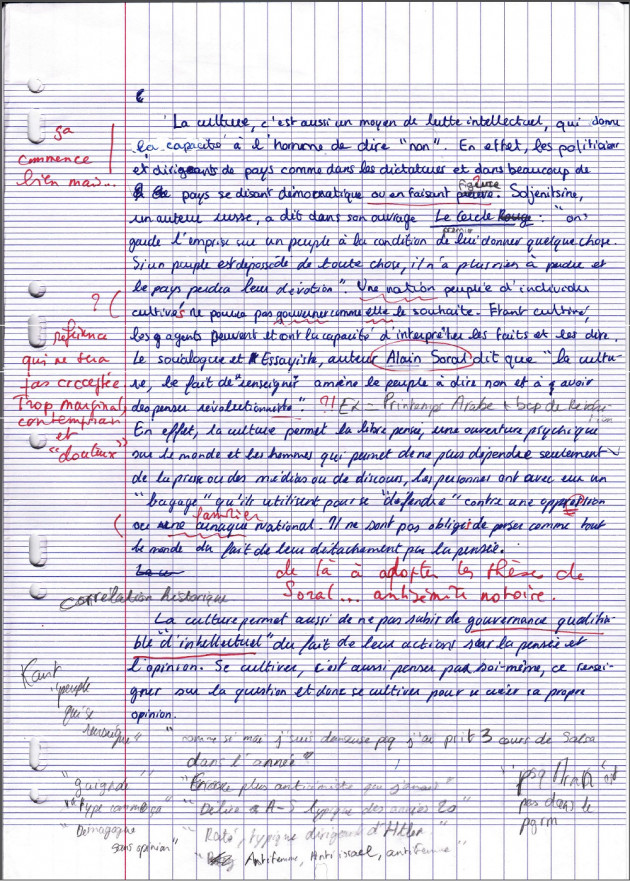 La culture, c'est aussi un moyen de lutte intellectuel, qui donne
la capacité à l'homme de dire "non". En effet, les politiciens
et dirigeants de pays comme dans les dictatures et dans beaucoup de
pays se disant démocratique ou en faisant figure. Soljenitsine,
un auteur russe, a dit dans son ouvrage Le Cercle Rouge : "on
premier
garde l'emprise sur un peuple à la condition de lui donner quelque chose.
Si un peuple est dépossédé de toute chose, il n'a plus rien à perdre et
le pays perdra leur dévotion". Une nation peuplée d'individus
cultivés ne pourra pas gouverner comme elle le souhaite. Etant cultivé,
les agents peuvent et ont la capacité d'interpréter les faits et les dire.
Le sociologue et Essayiste, auteur Alain Soral dit que "la cultu-
re, le fait de renseigner amène le peuple à dire non et à avoir
des penser révolutionnaire" ?! Ex = Printemps Arabe + bcp de
En effet, la culture permet la libre pensée, une ouverture psychique
sur le monde et les hommes qui permet de ne plus dépendre seulement
de la presse ou des médias ou de discours, les personnes ont avec eux un
"bagage" qu'ils utilisent pour se "défendre" contre une oppression
familier
ou arnaque national. Il ne sont pas obligé de penser comme tout
le monde du fait de leur détachement par la pensée.
de là à adopter les thèses de
Soral... antisémite notoire.
La culture permet aussi de ne pas subir de gouvernance qualifia-
ble "d'intellectuel" du fait de leur actions sur la pensée et
l'opinion. Se cultiver, c'est aussi penser par soi-même, ce rensei-
gner sur la question et donc se cultiver pour se créer sa propre
opinion.
ça
commence
bien mais...
?
référence
qui ne sera
pas acceptée
Trop marginal,
contemporain
et
"douteux"
Correlation historique
Kant
"peuple
qui se
"comme si moi j'suis danseuse pcq j'ai prit 3 cours de Salsa
dans l'année"
"Encore plus antisémite que jamais"
"Délire A-S typique des années 20"
"Raté, typique dirigeant d'Hitler"
Antifemme, Antiisrael, antifemme"
"type comme ça"
"Démagogue
sans opinion"
pas dans le
pgrm